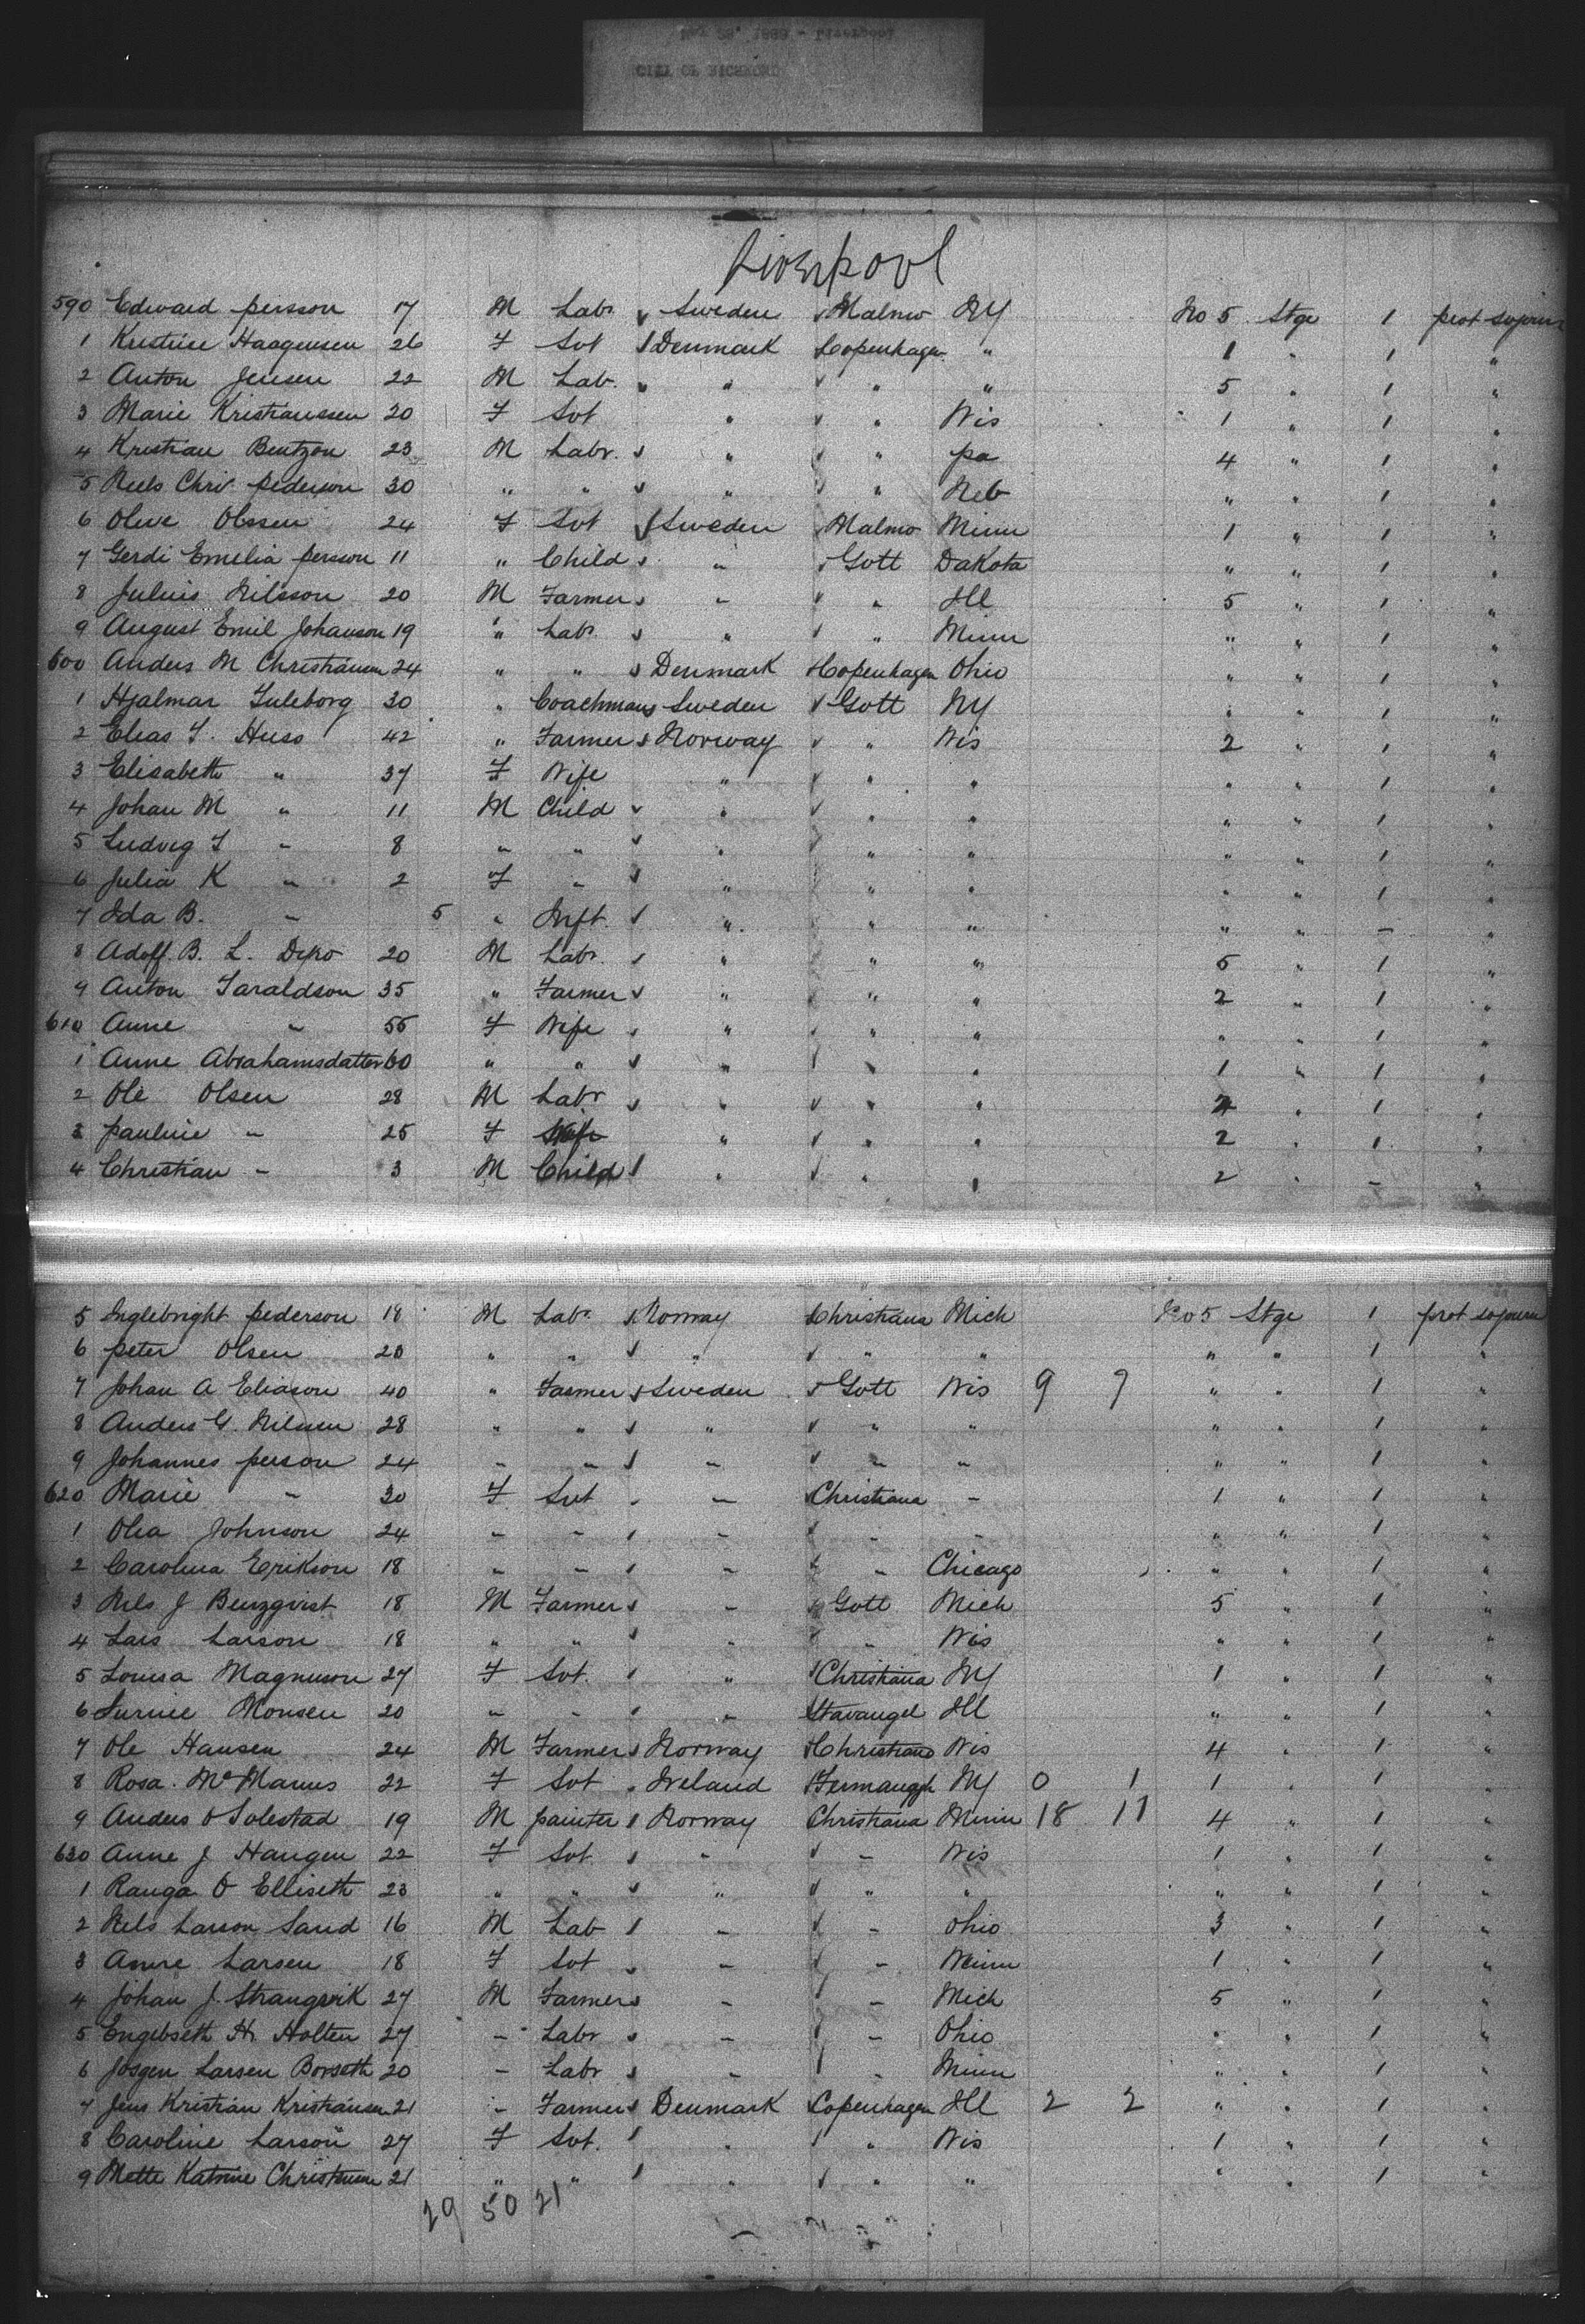 Liverpool
590 Edward persson 17 M Labr Sweden Malmo NY No 5 Stge 1 prot sojourn
1 Kristine Haagensen 26 F Svt Denmark Copenhagen " 1 " 1 "
2 Anton Jensen 22 M Lab. " " " " 5 " 1 "
3 Marie Kristianssen 20 F Svt " " Wis 1 " 1 "
4 Kristian Bentzon 23 M Labr. " " pa 4 " 1 "
5 Neels Chris pederson 30 " " " " Neb " " 1 "
6 Olive Olssen 24 F Svt Sweden Malmo Minn 1 " 1 "
7 Gerdi Emelia persson 11 " Child " Gott Dakota " " 1 "
8 Julius Nilsson 20 M Farmer " " Ill 5 " 1 "
9 August Emil Johanson 19 " Labr " " Minn " " 1 "
600 Anders M Christiansen 24 " " Denmark Copenhagen Ohio " " 1 "
1 Hjalmar Tuleborg 30 " Coachman Sweden Gott NY " " 1 "
2 Elias T. Huss 42 " Farmer Norway " Wis 2 " 1 "
3 Elisabeth " 37 F Wife " " " " " 1 "
4 Johan M " 11 M Child " " " " " 1 "
5 Ludvig T " 8 " " " " " " " 1 "
6 Julia K " 2 F " " " " " " 1 "
7 Ida B. " 5 " Inft. " " " " " - "
8 Adoff. B. L. 20 M Labr. " " " 5 " 1 "
9 Anton Taraldson 35 " Farmer " " " 2 " 1 "
610 Anne " 55 F Wife " " " " " 1 "
1 Anne Abrahamsdatter 60 " " " " " 1 " 1 "
2 Ole Olsen 28 M Labr " " " 2 " 1 "
3 pauline " 25 F Wife " " " 2 " 1 "
4 Christian " 3 M Child " " " 2 " - "
5 Inglebright pederson 18 M Labr Norway Christiana Mich No 5 Stge 1 prot sojourn
6 peter Olsen 20 " " " " " " " 1 "
7 Johan A Eliason 40 " Farmer Sweden Gott Wis 9 9 " " 1 "
8 Anders G. Nilssen 28 " " " " " " " 1 "
9 Johannes person 24 " " " " " " " 1 "
620 Marie " 30 F Svt " Christiana " 1 " 1 "
1 Olea Johnson 24 " " " " " " " 1 "
2 Carolina Erikson 18 " " " " Chicago " " 1 "
3 Nels J Benzqvist 18 M Farmer " Gott Mich 5 " 1 "
4 Lars Larson 18 " " " " Wis " " 1 "
5 Louisa Magnuson 27 F Svt. " Christiana NY 1 " 1 "
6 Monsen 20 " " " Stavangel Ill " " 1 "
7 Ole Hansen 24 M Farmer Norway Christiana Wis 4 " 1 "
8 Rosa Mc Manus 22 F Svt Ireland Fermaugh NY 0 1 1 " 1 "
9 Anders O Solestad 19 M painter Norway Christiana Minn 18 11 4 " 1 "
630 Anne J Haugen 22 F Svt " " Wis 1 " 1 "
1 Ranga O Elliseth 23 " " " " " " " 1 "
2 Nels Larson Sand 16 M Lab " " Ohio 3 " 1 "
3 Anne Larsen 18 F Svt " " Minn 1 " 1 "
4 Johan J. Strangvik 27 M Farmer " " Mich 5 " 1 "
5 Engebseth H. Holten 27 " Labr " " Ohio " " 1 "
6 Jorgen Larsen Borseth 20 " Labr " " Minn " " 1 "
7 Jens Kristian Kristiansen 21 " Farmer Denmark Copenhagen Ill 2 2 " " 1 "
8 Caroline Larson 27 F Svt. " " Wis 1 " 1 "
9 Mette Katrine 21 " " " " " " " 1 "
29 50 21